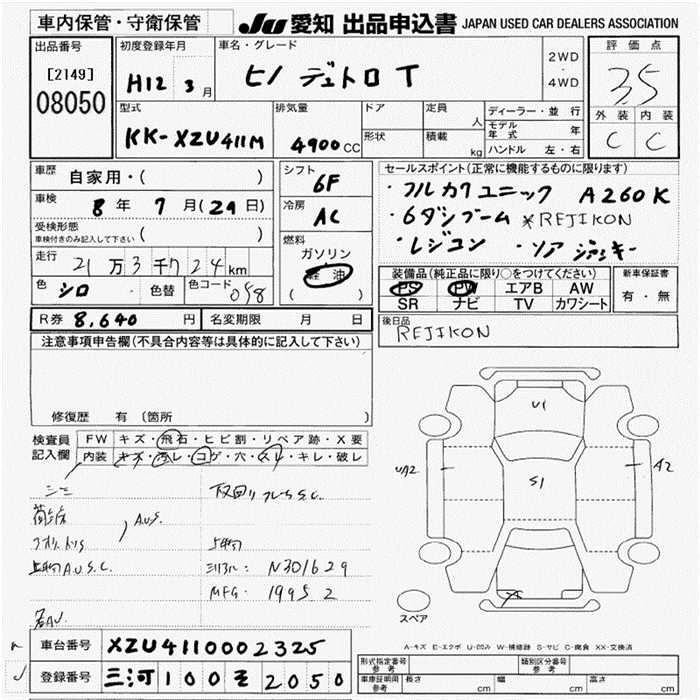 車内保管・守衛保管
JU 愛知 出品申込書 JAPAN USED CAR DEALERS ASSOCIATION
出品番号
[2149]
08050
初度登録年月
H12 3月
車名・グレード
ヒノ デュトロ T
2WD
・
4WD
評価点
3.5
外装 内装
C C
型式
KK-XZU411M
排気量
4900 CC
ドア
形状
定員
人
積載
kg
ディーラー・並行
モデル年式 年
ハンドル 左・右
車歴 自家用・( )
車検 8年 7月(29日)
受検形態
車検付きのみ記入して下さい ( )
走行 21万3千724km
色 シロ 色替 色コード 058
シフト
6F
冷房
AC
燃料
ガソリン
軽油
( )
セールスポイント(正常に機能するものに限ります)
・フルカクユニック A260K
・6ダンブーム *REJIKON
・レジコン ・ソアジャッキー
装備品(純正品に限り○をつけてください)
PS PW エアB AW
SR ナビ TV カワシート
新車保証書
有・無
R券 8,640円 名変期限 月 日
後日品
REJIKON
注意事項申告欄(不具合内容等は具体的に記入して下さい)
修復歴 有 (箇所 )
検査員記入欄
FW キズ・飛石・ヒビ割・リペア跡・X要
内装 キズ・汚レ・コゲ・穴・スレ・キレ・破レ
A.U.S.
A.U.S.C.
N301629
MFG. 1995 2
U1
UA2
S1
A2
X
スペア
A-キズ E-エクボ U-凹み W-補修跡 S-サビ C-腐食 XX-交換済
車台番号 XZU4110002325
登録番号 三河100そ2050
形式指定番号 参考
類別区分番号 参考
車庫証明用 参考 長さ cm 幅 cm 高さ cm